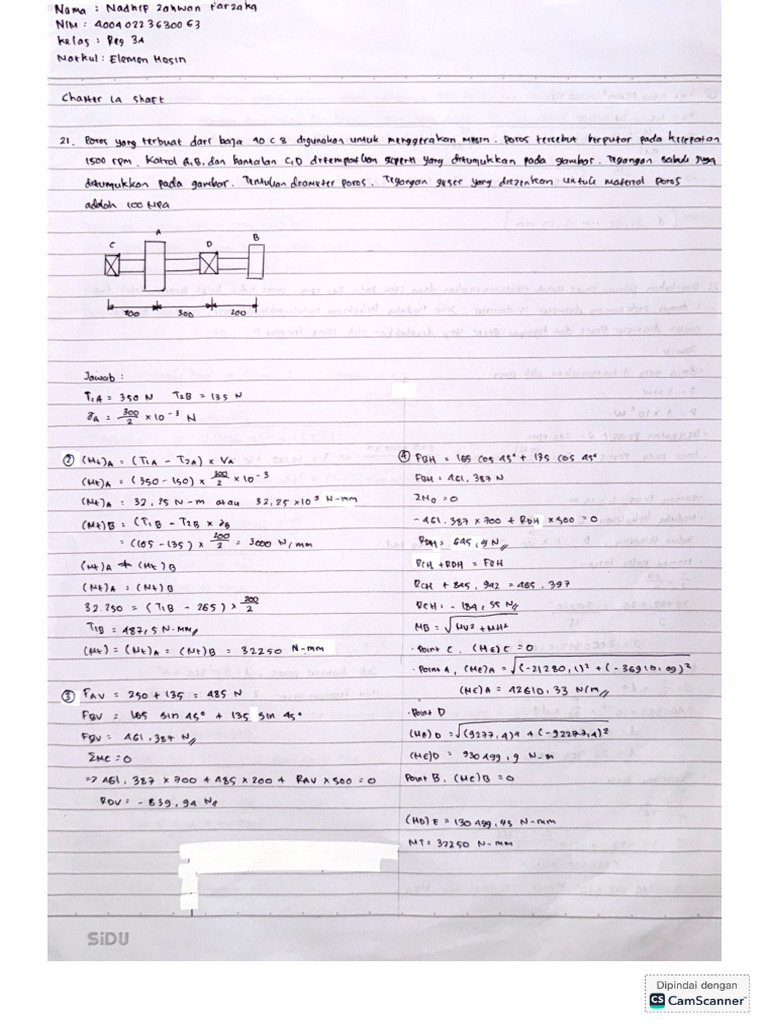 Nama : Nadhif Zahwan Farzaha
NIM : 40040223630063
Kelas : Reg 3A
Matkul : Elemen Mesin
Chapter 1A Shaft
21. Poros yang terbuat dari baja 40 C 8 digunakan untuk menggerakan mesin. Poros tersebut berputar pada kecepatan
1500 rpm. Katrol A, B, dan bantalan C, D ditempatkan seperti yang ditunjukkan pada gambar. Tegangan sabuk juga
ditunjukkan pada gambar. Tentukan diameter poros. Tegangan geser yang diizinkan untuk material poros
adalah 100 MPa
C A D B
200 300 200
Jawab :
T1A = 350 N T2B = 135 N
= 300/2 × 10⁻³ N
② (Mt)A = (T1A - T2A) × VA
(Mt)A = (350 - 150) × 300/2 × 10⁻³
(Mt)A = 32,25 N-m atau 32,25 × 10³ N-mm
(Mt)B = (T1B - T2B ×
= (165 - 135) × 200/2 = 3000 N/mm
(Mt)A ≠ (Mt)B
(Mt)A = (Mt)B
32.250 = (T1B - 265) × 200/2
T1B = 487,5 N-mm
(Mt) = (Mt)A = (Mt)B = 32250 N-mm
③ FAV = 250 + 135 = 485 N
FBV = 165 sin 45° + 135 sin 45°
FBV = 461,387 N
ΣMC = 0
=> 461,387 × 700 + 485 × 200 + RAV × 500 = 0
RDV = - 839,94 N
④ FBH = 165 cos 45° + 135 cos 45°
FBH = 461,387 N
ΣM0 = 0
- 461.387 × 700 + RDH × 500 = 0
RDH = 645,9 N
RCH + RDH = FBH
RCH + 845,942 = 465,397
RCH = - 184,55 N
MB = √MV² + MH²
· Point C, (Mb)C = 0
· Point A, (Mb)A = √(-21280,1)² + (-36910,09)²
(Mb)A = 42610,33 N/m
· Point D
(Mb)D = √(9277,4)² + (-92277,4)²
(Mb)D = 930499,9 N-m
Point B, (Mb)B = 0
(Mb)E = 130499,45 N-mm
MT = 32250 N-mm
SiDU
Dipindai dengan
CS CamScanner